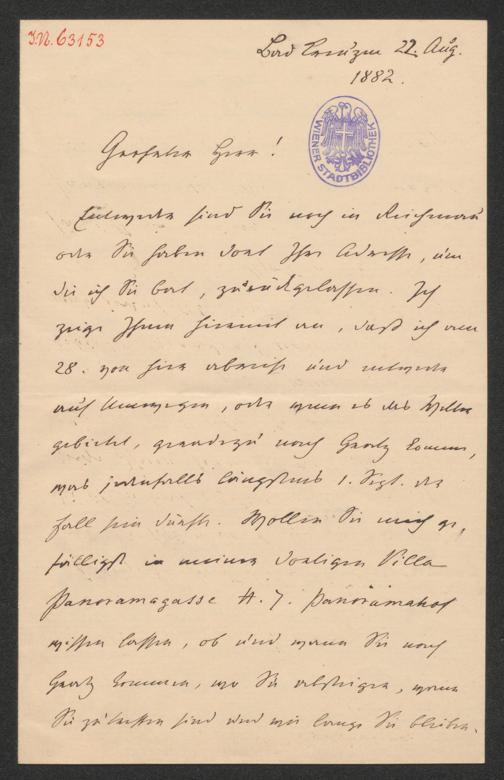 I.N. 63153
Bad Kreuzen 22. Aug.
1882.
WIENER STADTBIBLIOTHEK
Geehrter Herr!
Entweder sind Sie noch in Reichenau
oder Sie haben dort Ihre Adresse, um
die ich Sie bat, zurückgelassen. Ich
zeige Ihnen hiemit an, daß ich am
28. von hier abreise und entweder
auf Umwegen, oder wenn es das Wetter
gebietet, geradezu nach Graz komme,
was jedenfalls längstens 1. Sept. der
Fall sein dürfte. Wollen Sie mich ge-
fälligst in meiner dortigen Villa
Panoramagasse H. 7. Panoramahof
wissen lassen, ob und wann Sie nach
Graz kommen, wo Sie absteigen, wann
Sie zu treffen sind und wie lange Sie bleiben.